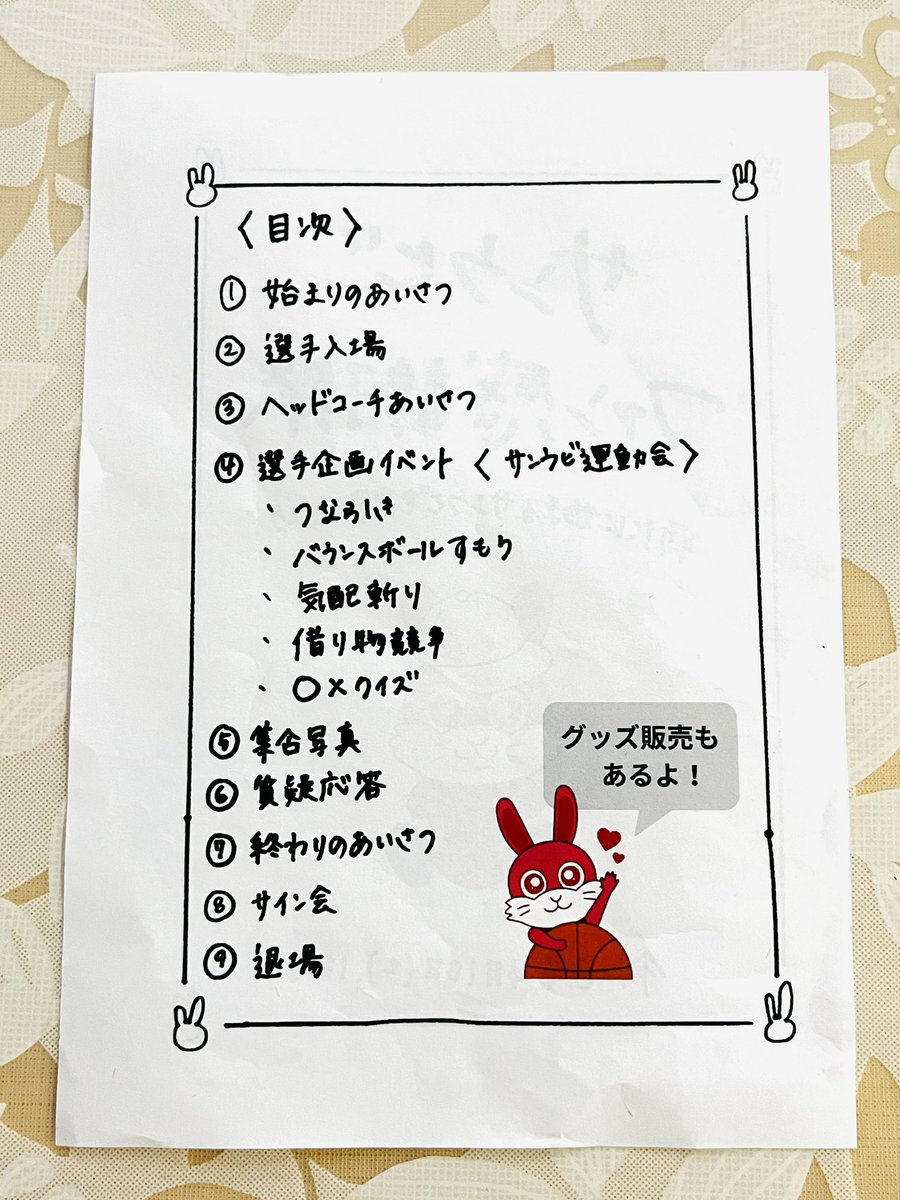 〈目次〉
① 始まりのあいさつ
② 選手入場
③ ヘッドコーチあいさつ
④ 選手企画イベント〈サンウビ運動会〉
・ つなひき
・ バウンスボールすもう
・ 気配斬り
・ 借り物競争
・ ○×クイズ
⑤ 集合写真
⑥ 質疑応答
⑦ 終わりのあいさつ
⑧ サイン会
⑨ 退場
グッズ販売も
あるよ！